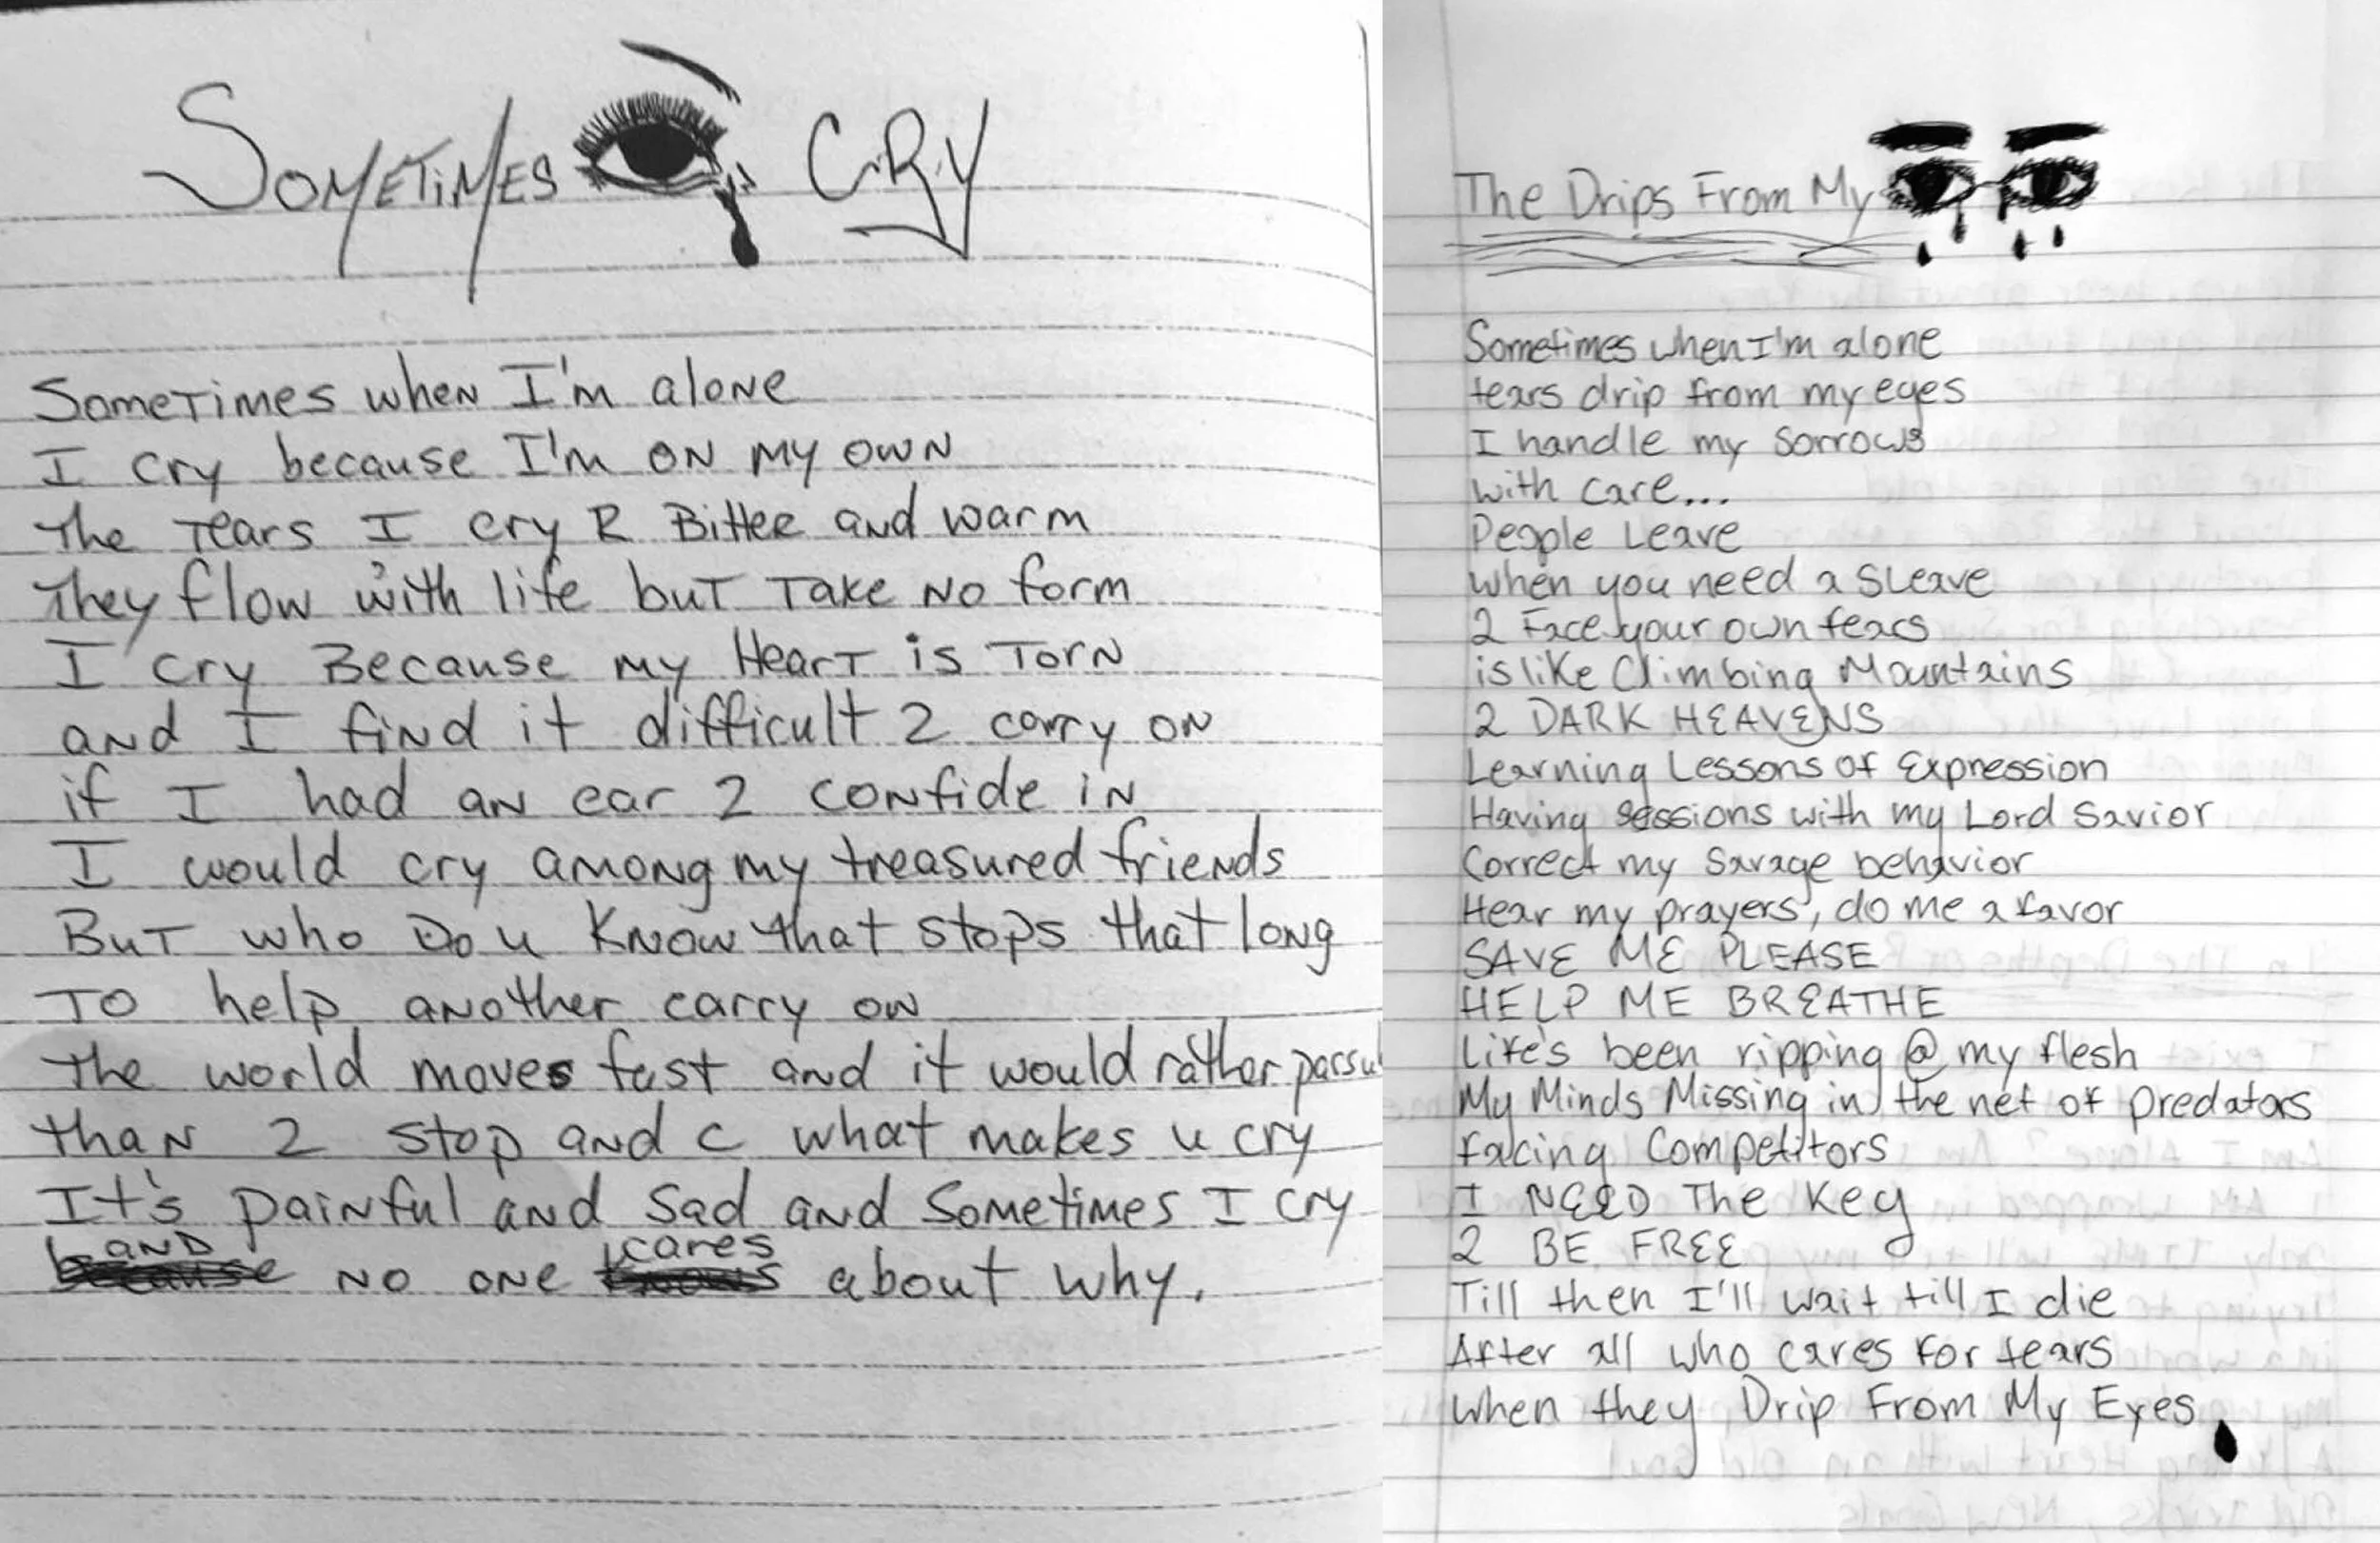 SOMETIMES CRY
Sometimes when I'm alone
I cry because I'm on my own
The Tears I cry R Bitter and warm
They flow with life but Take No form
I cry Because my Heart is Torn
and I find it difficult 2 carry on
if I had an ear 2 confide in
I would cry among my treasured friends
But who Do u Know that stops that long
To help another carry on
The world moves fast and it would rather
than 2 stop and c what makes u cry
It's painful and sad and sometimes I cry
AND no one cares about why.
The Drips From My
Sometimes when I'm alone
tears drip from my eyes
I handle my sorrows
with care...
People Leave
when you need a Sleave
2 Face your own fears
is like Climbing Mountains
2 DARK HEAVENS
Learning Lessons of Expression
Having sessions with my Lord Savior
Correct my Savage behavior
Hear my prayers, do me a favor
SAVE ME PLEASE
HELP ME BREATHE
Life's been ripping @ my flesh
My Minds Missing in the net of predators
facing Competitors
I NEED The Key
2 BE FREE
Till then I'll wait till I die
After all who cares for tears
When they Drip From My Eyes